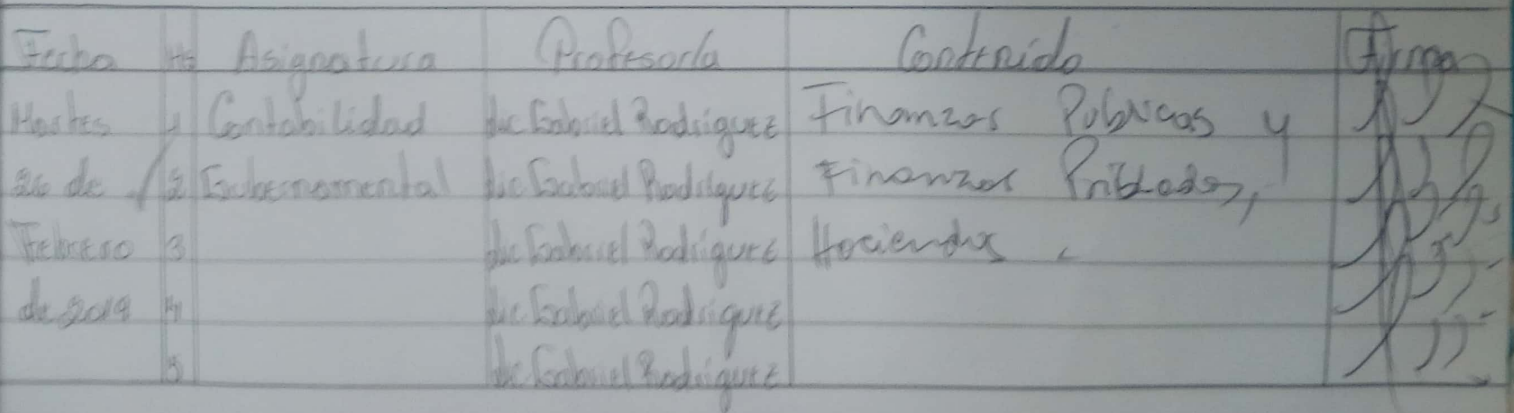 Fecha Hs Asignatura Profesor/a Contenido Firma
Martes 1 Contabilidad Lic Gabriel Rodriguez Finanzas Públicas y
26 de 2 Gubernamental Lic Gabriel Rodriguez Finanzas Privadas,
Febrero 3 Lic Gabriel Rodriguez Hacienda
de 2019 4 Lic Gabriel Rodriguez
5 Lic Gabriel Rodriguez